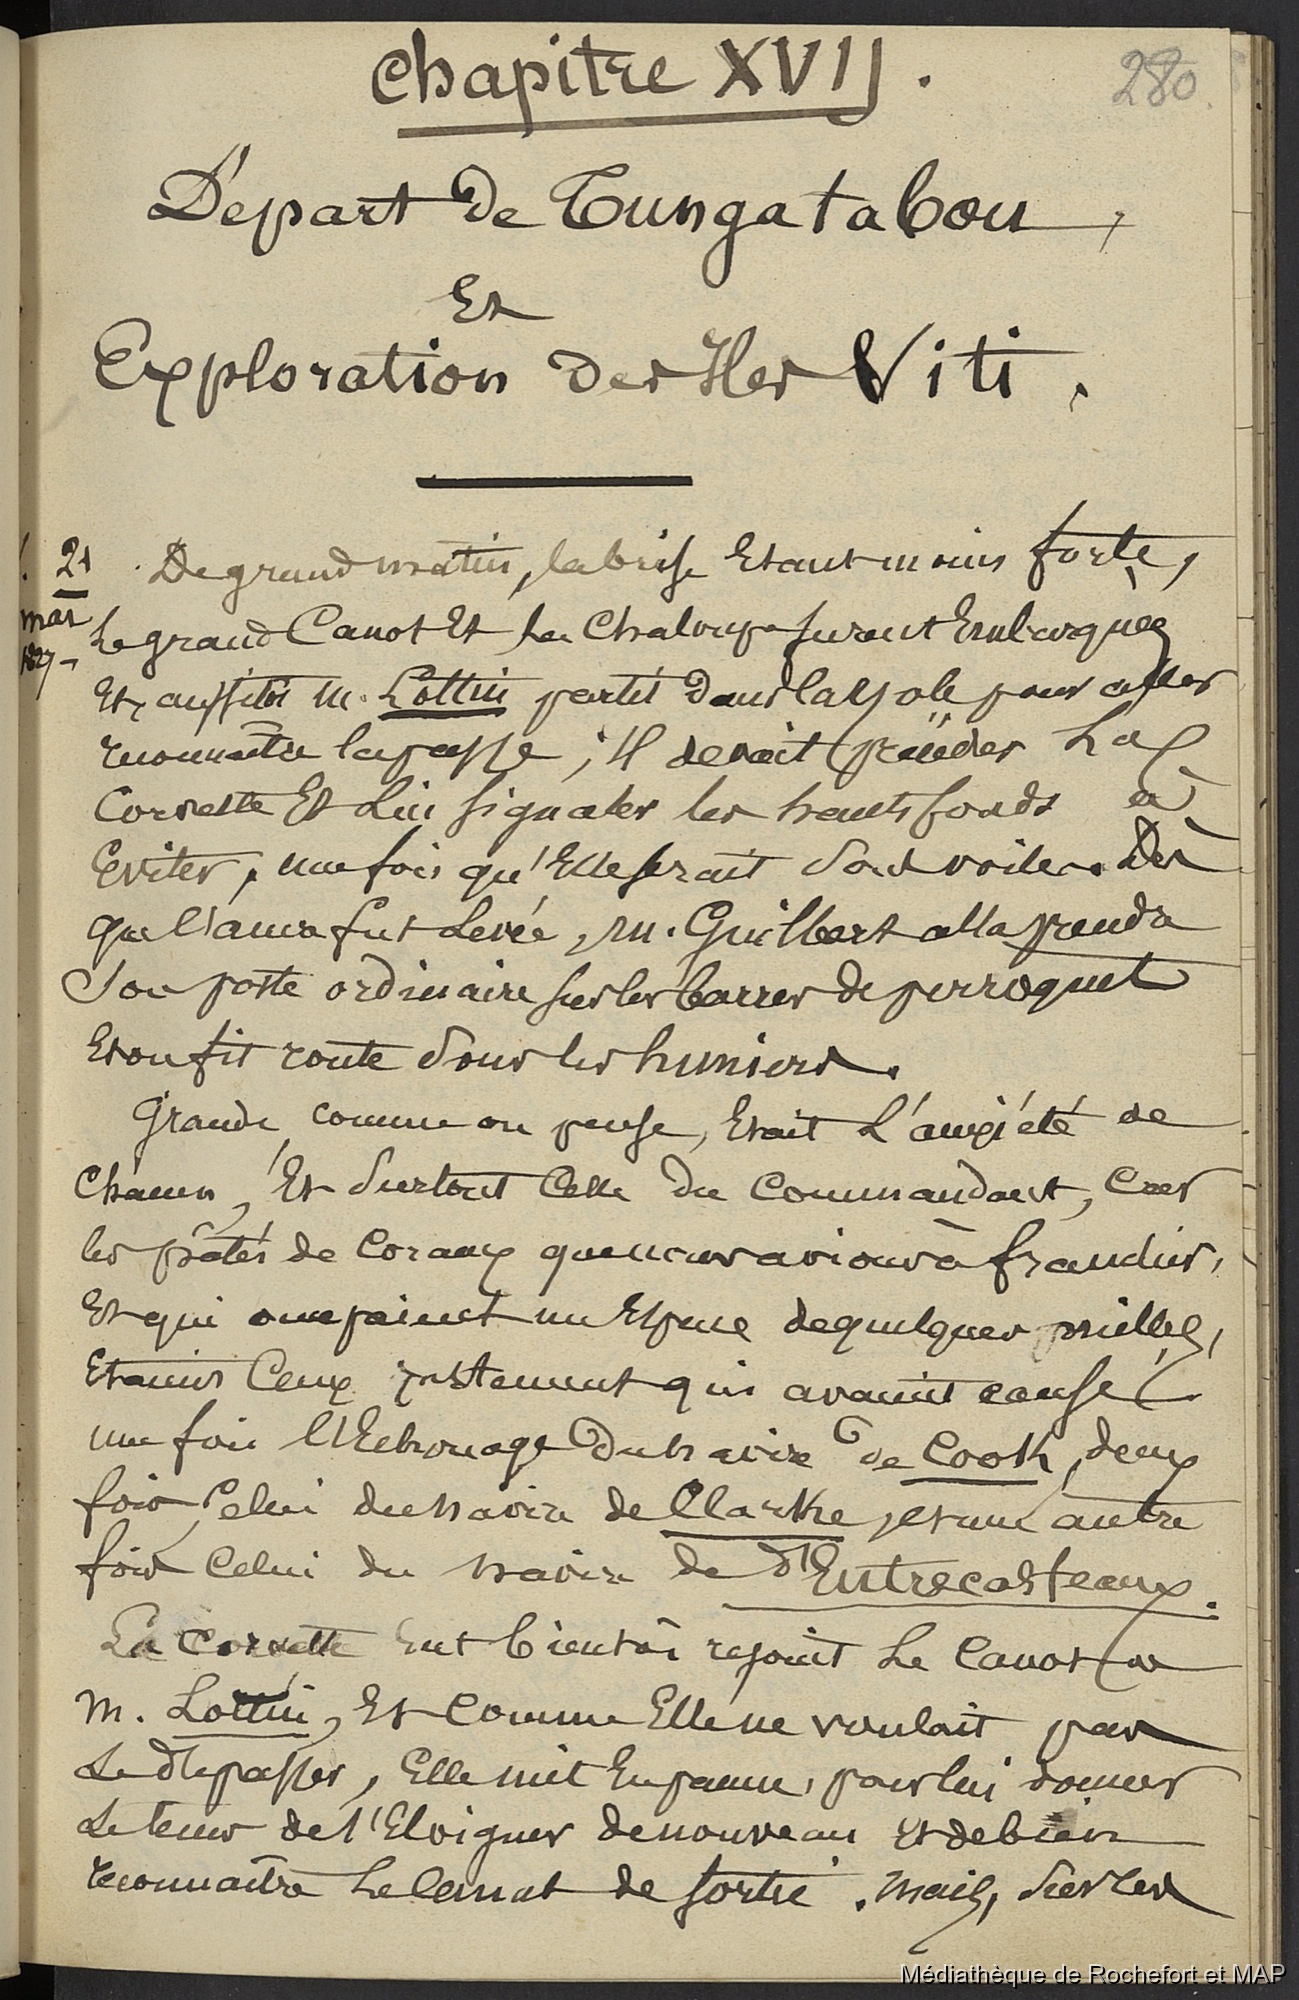 Chapitre XVIJ.
280
Départ de Tungatabou,
Et
Exploration des Iles Viti.
21
mai
1827
De grand matin, la brise Etant moins forte,
Le grand Canot Et la Chaloupe furent Embarqués
Et, aussitôt M. Lottin partit dans la Yole pour aller
reconnaître la passe; Il devait précéder La
Corvette Et Lui signaler les hauts fonds à
Eviter, une fois qu'Elle serait sous voiles. Dès
que l'ancre fut Levée, M. Guilbert alla prendre
Son poste ordinaire sur les barres de perroquet
Et on fit route sous les huniers.
Grande comme on pense, Etait L'anxiété de
Chacun, Et Surtout Celle du Commandant, Car
les pâtés de Coraux que nous avions à franchir,
Et qui occupaient un Espace de quelques milles,
Etaient Ceux justement qui avaient causé
une fois l'Echouage du navire de Cook, deux
fois Celui du navire de Clarke, et une autre
fois Celui du navire de d'Entrecasteaux.
La Corvette Eut bientôt rejoint Le Canot de
M. Lottin, Et Comme Elle ne voulait pas
Le dépasser, Elle mit En panne, pour lui donner
Le tems de s'Eloigner de nouveau et de bien
reconnaître Le Canal de sortie. Mais, Sur les
Médiathèque de Rochefort et MAP